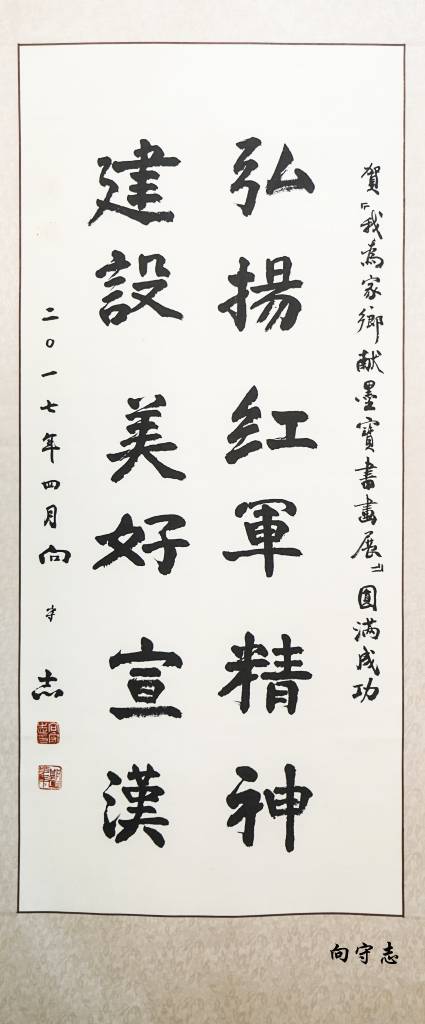 賀“我為家鄉献墨寶書畫展”圓滿成功
弘揚紅軍精神
建設美好宣漢
二〇一七年四月向守志
向守志